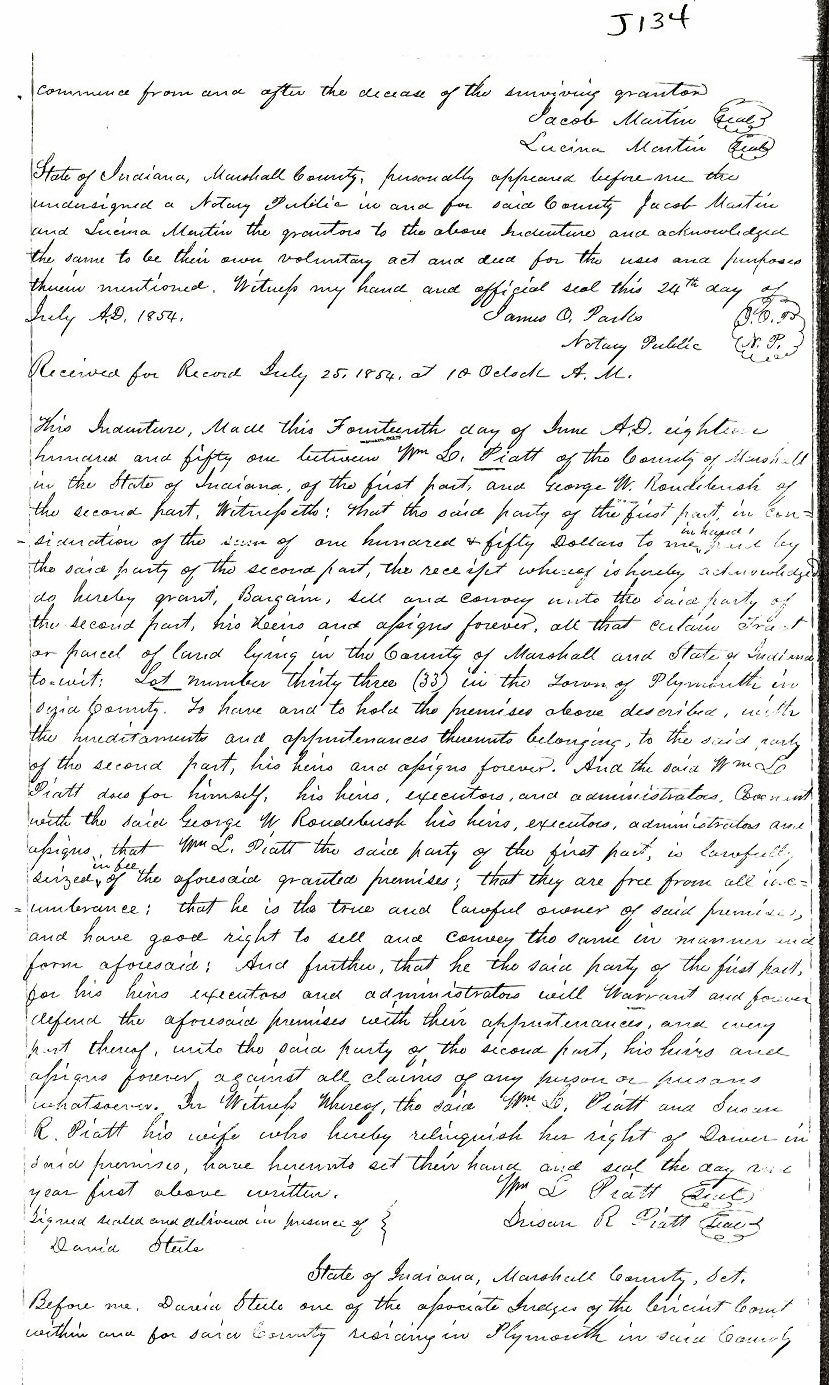 J134
commence from and after the decease of the surviving grantor
Jacob Martin Seal
Lucina Martin Seal
State of Indiana, Marshall County, personally appeared before me the
undersigned a Notary Public in and for said County Jacob Martin
and Lucina Martin the grantors to the above Indenture and acknowledged
the same to be their own voluntary act and deed for the uses and purposes
therein mentioned. Witness my hand and official seal this 24th day of
July A.D. 1854. James O. Parks J.O.P.
Notary Public N.P.
Received for Record July 25, 1854, at 10 Oclock A.M.
This Indenture, Made this Fourteenth day of June A.D. eighteen
hundred and fifty one between Wm L. Piatt of the County of Marshall
in the State of Indiana, of the first part, and George W. Roudebush of
the second part, Witnesseth: That the said party of the first part, in con=
sideration of the sum of one hundred & fifty Dollars to me in hand paid by
the said party of the second part, the receipt whereof is hereby acknowledged
do hereby grant, Bargain, sell and convey unto the said party of
the second part, his heirs and assigns forever, all that certain Tract
or parcel of land lying in the County of Marshall and State of Indiana
to=wit: Lot number thirty three (33) in the Town of Plymouth in
said County. To have and to hold the premises above described, with
the hereditaments and appurtenances thereunto belonging, to the said party
of the second part, his heirs and assigns forever. And the said Wm L
Piatt does for himself, his heirs, executors, and administrators, Covenant
with the said George W Roudebush his heirs, executors, administrators and
assigns, that Wm L. Piatt the said party of the first part, is lawfully
seized in fee of the aforesaid granted premises; that they are free from all inc=
=umberance; that he is the true and lawful owner of said premises,
and have good right to sell and convey the same in manner and
form aforesaid; And further, that he the said party of the first part,
for his heirs executors and administrators will Warrant and forever
defend the aforesaid premises with their appurtenances, and every
part thereof, unto the said party of the second part, his heirs and
assigns forever, against all claims of any person or persons
whatsoever. In Witness Whereof, the said Wm L. Piatt and Susan
R. Piatt his wife who hereby relinquish her right of Dower in
said premises, have hereunto set their hand and seal the day and
year first above written. Wm L Piatt Seal
Signed sealed and delivered in presence of } Susan R Piatt Seal
David Steele
State of Indiana, Marshall County, Sct.
Before me, David Steele one of the associate Judges of the Circuit Court
within and for said County residing in Plymouth in said County